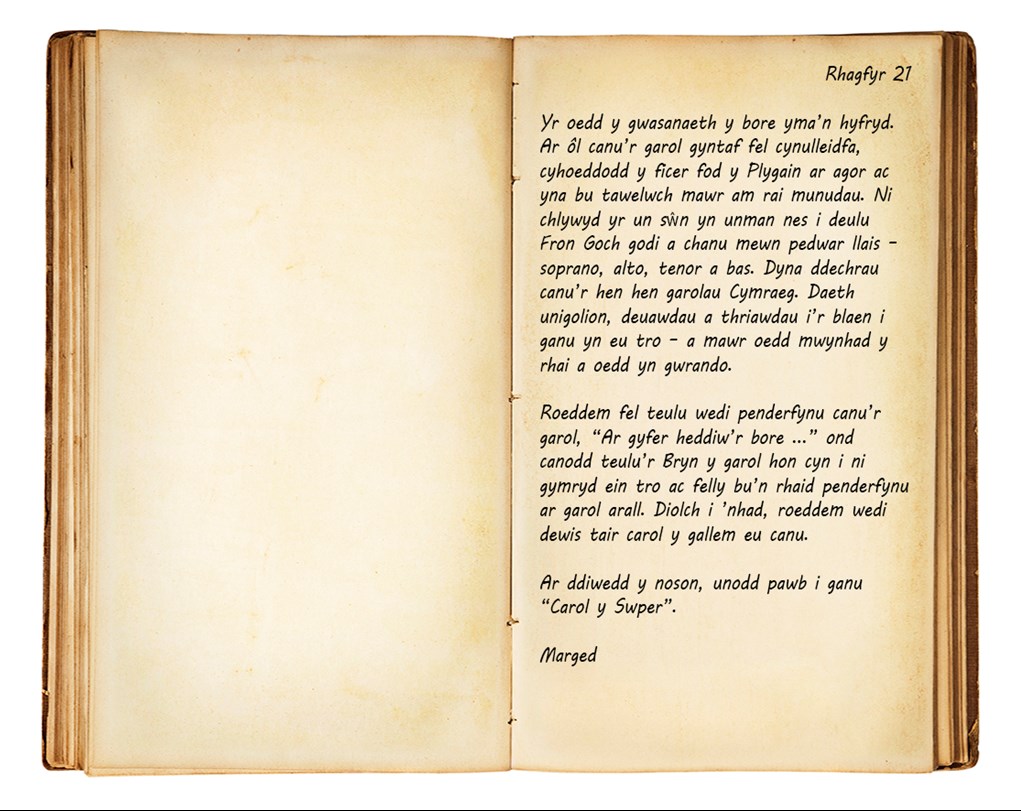 Rhagfyr 21
Yr oedd y gwasanaeth y bore yma'n hyfryd.
Ar ôl canu'r garol gyntaf fel cynulleidfa,
cyhoeddodd y ficer fod y Plygain ar agor ac
yna bu tawelwch mawr am rai munudau. Ni
chlywyd yr un sŵn yn unman nes i deulu
Fron Goch godi a chanu mewn pedwar llais –
soprano, alto, tenor a bas. Dyna ddechrau
canu'r hen hen garolau Cymraeg. Daeth
unigolion, deuawdau a thriawdau i'r blaen i
ganu yn eu tro – a mawr oedd mwynhad y
rhai a oedd yn gwrando.
Roeddem fel teulu wedi penderfynu canu'r
garol, “Ar gyfer heddiw'r bore ...” ond
canodd teulu'r Bryn y garol hon cyn i ni
gymryd ein tro ac felly bu'n rhaid penderfynu
ar garol arall. Diolch i 'nhad, roeddem wedi
dewis tair carol y gallem eu canu.
Ar ddiwedd y noson, unodd pawb i ganu
“Carol y Swper”.
Marged